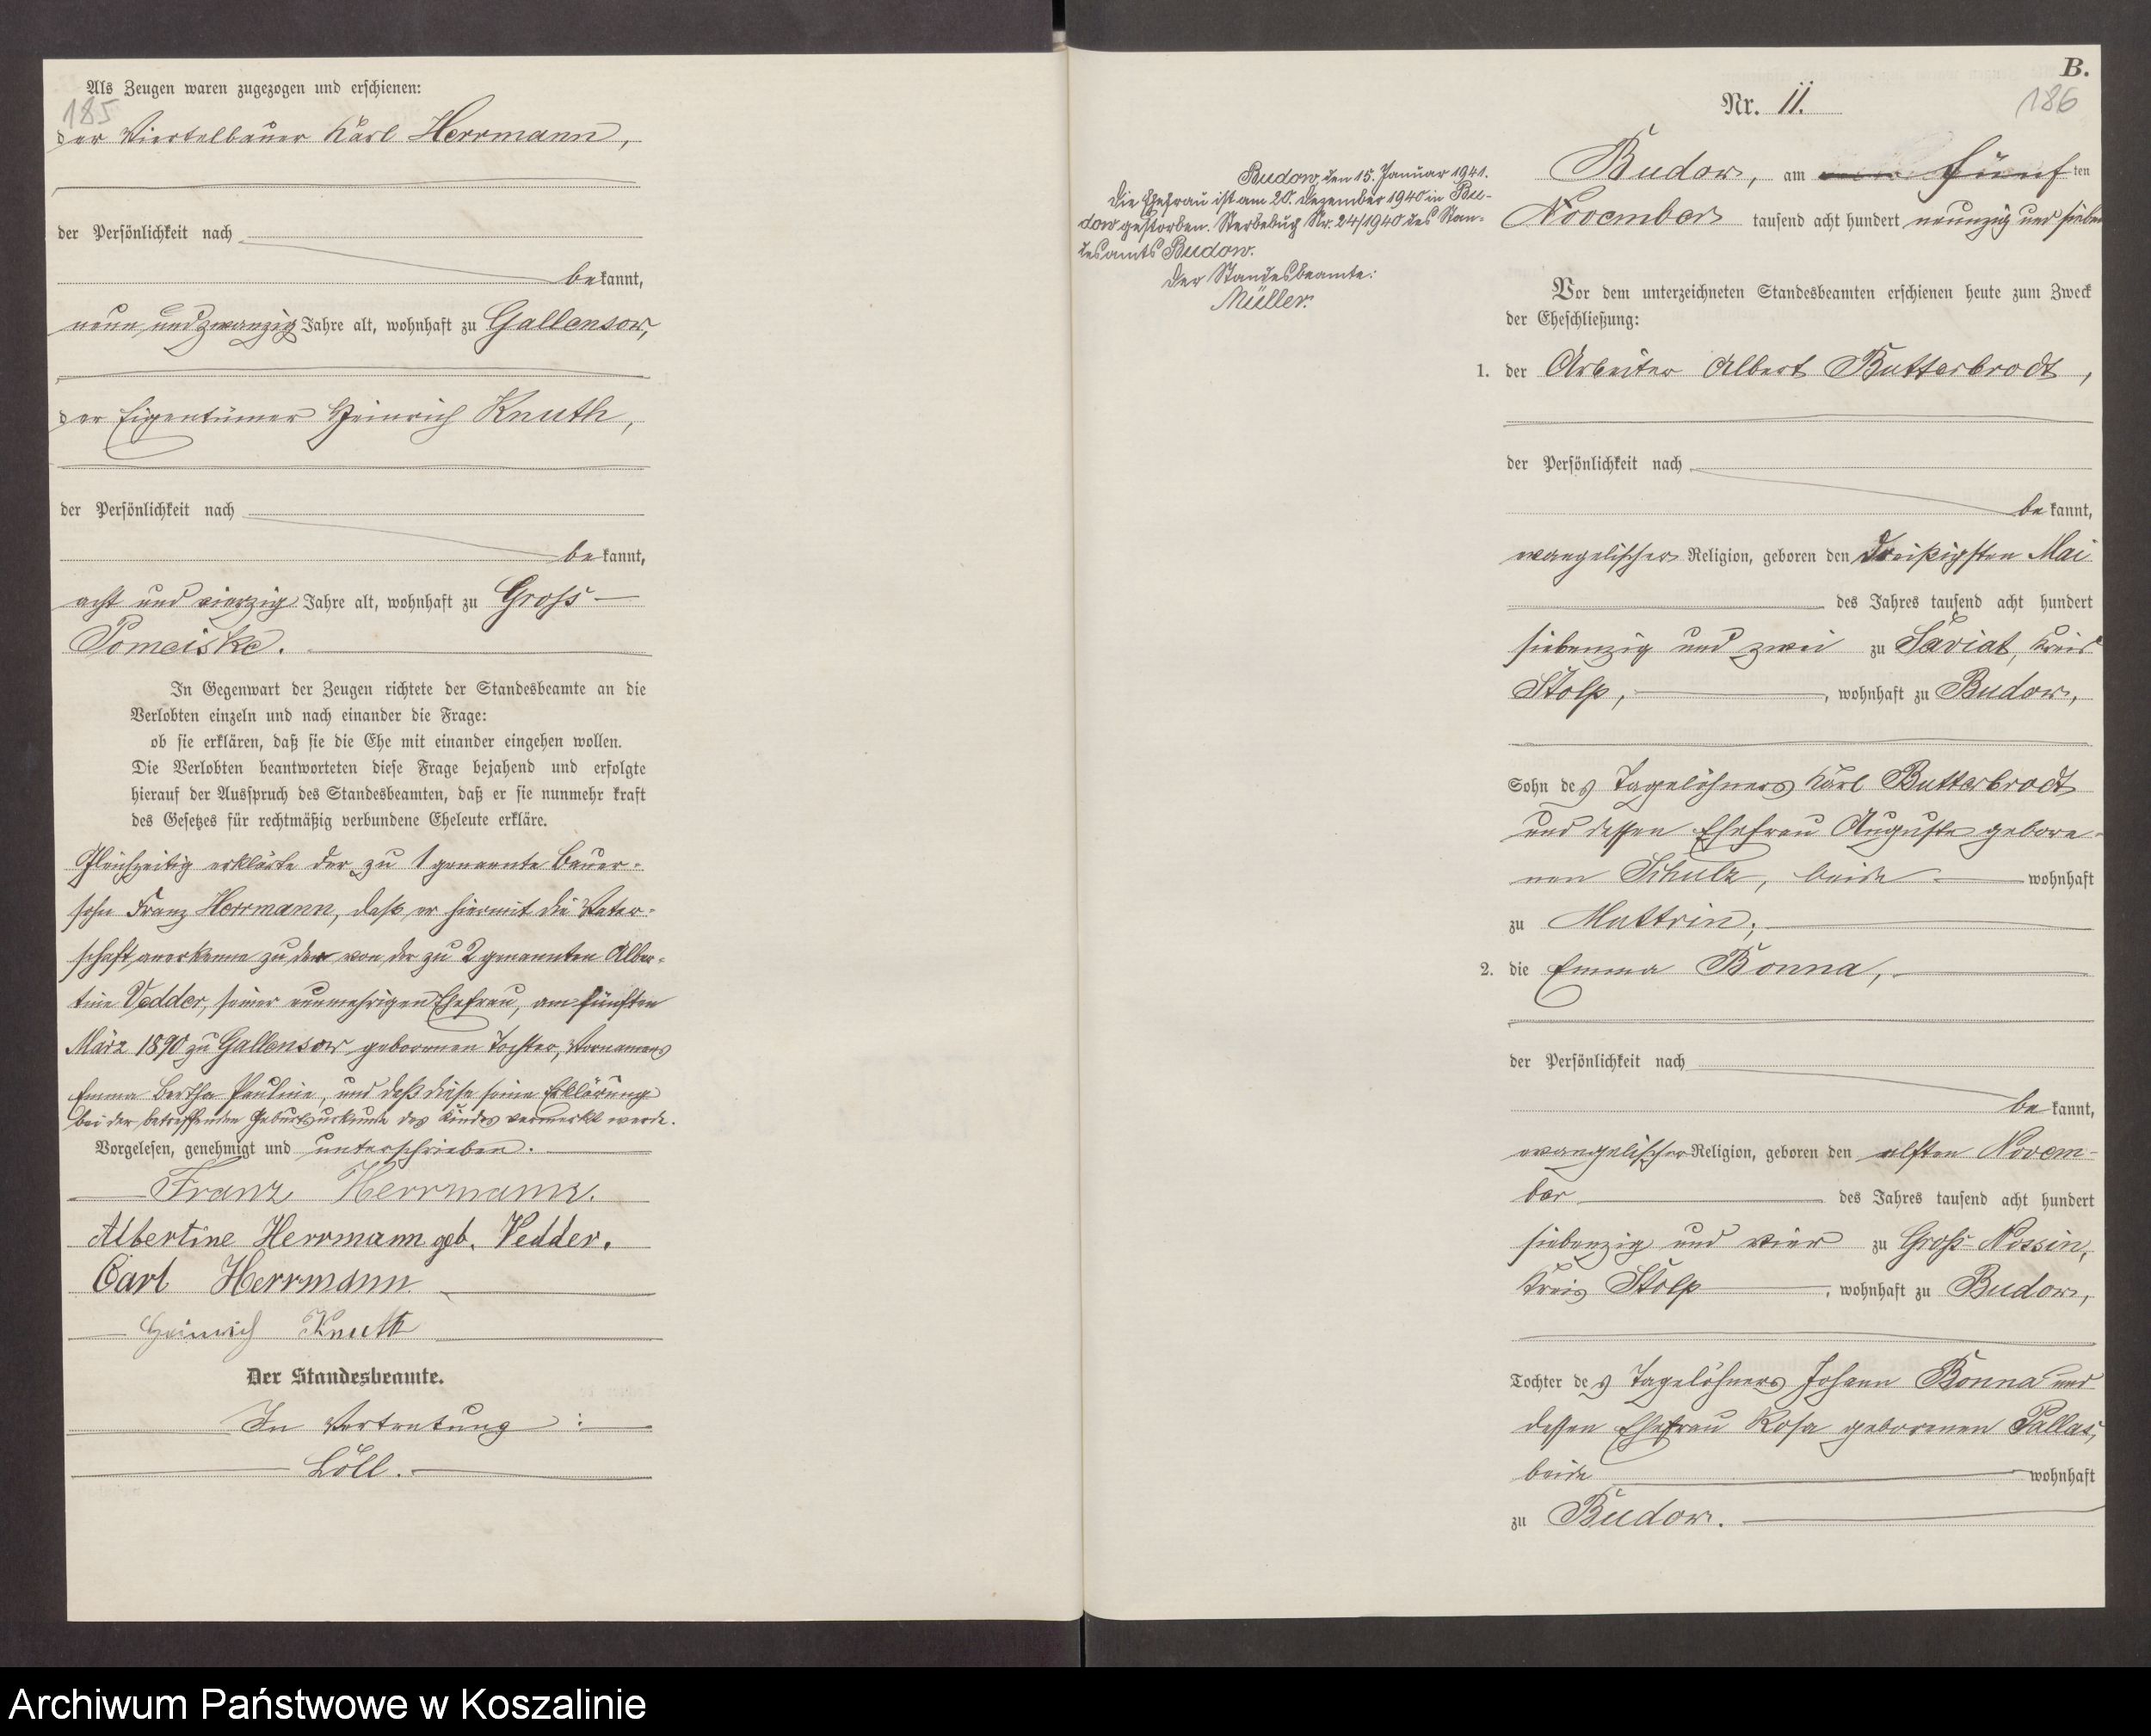 Als Zeugen waren zugezogen und erschienen:
185
der Viertelbauer Karl Herrmann,
der Persönlichkeit nach
bekannt,
neun und zwanzig Jahre alt, wohnhaft zu Gallensow,
der Eigentümer Heinrich Knuth,
der Persönlichkeit nach
bekannt,
acht und vierzig Jahre alt, wohnhaft zu Gross-
Pomeiske.
In Gegenwart der Zeugen richtete der Standesbeamte an die
Verlobten einzeln und nach einander die Frage:
ob sie erklären, daß sie die Ehe mit einander eingehen wollen.
Die Verlobten beantworteten diese Frage bejahend und erfolgte
hierauf der Ausspruch des Standesbeamten, daß er sie nunmehr kraft
des Gesetzes für rechtmäßig verbundene Eheleute erkläre.
Gleichzeitig erklärte der zu 1 genannte Bauer-
sohn Franz Herrmann, daß er hiermit die Vater-
schaft anerkenne zu der von der zu 2 genannten Alber-
tine Vedder, seiner nunmehrigen Ehefrau, am fünften
März 1890 zu Gallensow geborenen Tochter, Vornamens
Emma Bertha Pauline, und daß diese seine Erklärung
bei der betreffenden Geburtsurkunde des Kindes vermerkt werde.
Vorgelesen, genehmigt und unterschrieben.
Franz Herrmann.
Albertine Herrmann geb. Vedder.
Carl Herrmann
Heinrich Knuth
Der Standesbeamte.
In Vertretung:
Löll.
B.
186
Nr. 11.
Budow, den 15. Januar 1941.
Die Ehefrau ist am 20. Dezember 1940 in Bu-
dow gestorben. Sterbebuch Nr. 24/1940 des Stan-
desamts Budow.
Der Standesbeamte:
Müller.
Budow, am fünften
November tausend acht hundert neunzig und sieben
Vor dem unterzeichneten Standesbeamten erschienen heute zum Zweck
der Eheschließung:
1. der Arbeiter Albert Butterbrodt,
der Persönlichkeit nach
bekannt,
evangelischer Religion, geboren den dreißigsten Mai
des Jahres tausend acht hundert
siebenzig und zwei zu Saviat, Kreis
Stolp, wohnhaft zu Budow,
Sohn des Tagelöhners Karl Butterbrodt
und dessen Ehefrau Auguste gebore-
nen Schulz, beide wohnhaft
zu Muttrin;
2. die Emma Bonna,
der Persönlichkeit nach
bekannt,
evangelischer Religion, geboren den elften Novem-
ber des Jahres tausend acht hundert
siebenzig und vier zu Groß-Nossin,
Kreis Stolp, wohnhaft zu Budow,
Tochter des Tagelöhners Johann Bonna und
dessen Ehefrau Rosa geborenen Pallas,
beide wohnhaft
zu Budow.
Archiwum Państwowe w Koszalinie